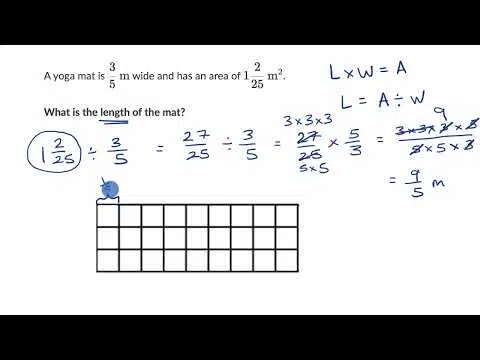 A yoga mat is 3/5 m wide and has an area of 1 2/25 m².
L × W = A
L = A ÷ W
What is the length of the mat?
1 2/25 ÷ 3/5 = 27/25 ÷ 3/5 = 27/25 × 5/3 = 3×3×3×5/5×5×3
3×3×3
5×5
9
= 9/5 m